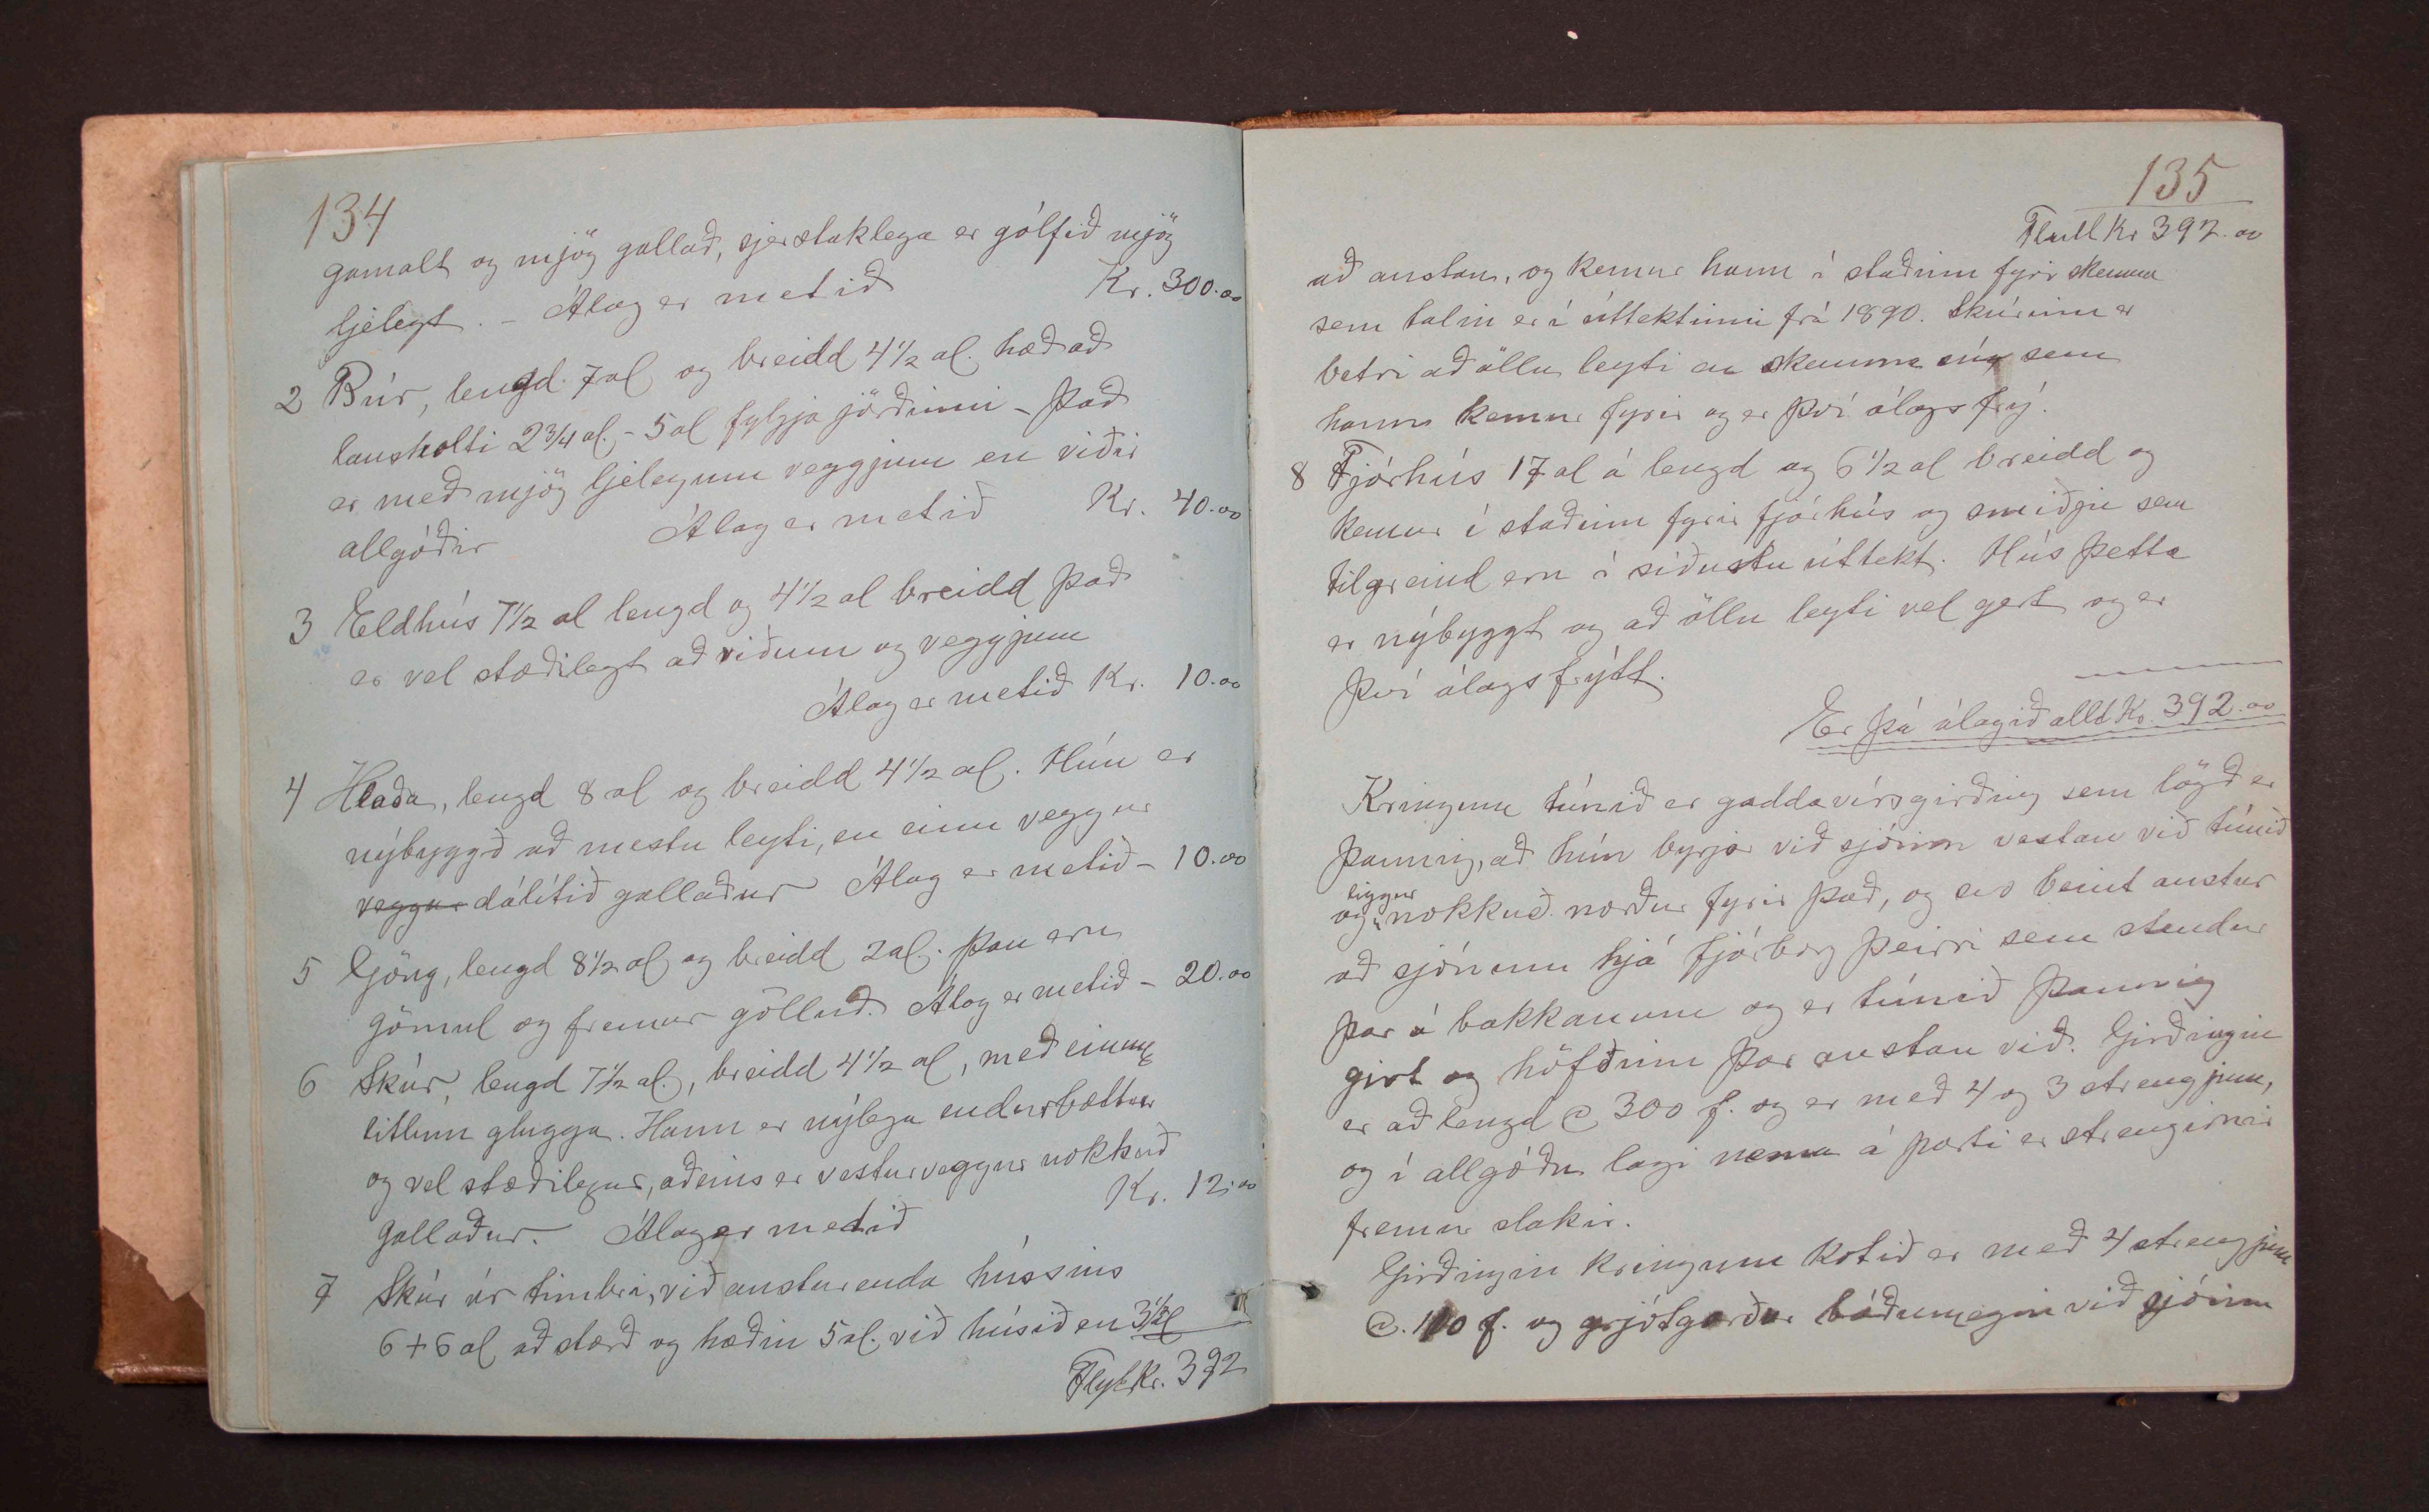 134
gamalt og mjög gallað, sjerstaklega er gólfið mjög
ljelegt. – Álag er metið Kr. 300.00
2 Búr, lengd 7 al og breidd 4 1/2 al. hæð að
lausholti 2 3/4 al. – 5 al fylgja jörðinni – það
er með mjög ljelegum veggjum en viðir
allgóðir Álag er metið Kr. 40.00
3 Eldhús 7 1/2 al lengd og 4 1/2 al breidd það
er vel stæðilegt að viðum og veggjum
Álag er metið Kr. 10.00
4 Hlaða, lengd 8 al og breidd 4 1/2 al. Hún er
nýbyggð að mestu leyti, en einn veggur
veggur dálítið gallaður Álag er metið – 10.00
5 Göng, lengd 8 1/2 al og breidd 2 al. þau eru
gömul og fremur gölluð. Álag er metið – 20.00
6 Skúr, lengd 7 1/2 al., breidd 4 1/2 al, með einum
litlum glugga. Hann er nýlega endurbættur
og vel stæðilegur, aðeins er vesturveggur nokkuð
gallaður. Álag er metið Kr. 12.00
7 Skúr úr timbri, við austurenda hússins
6+6 al að stærð og hæðin 5 al. við húsið en 3 1/2 al
Flyt Kr. 392
135
Flutt Kr 392.00
að austan, og kemur hann í staðinn fyrir skemmu
sem talin er í úttektinni frá 1890. Skúrinn er
betri að öllu leyti en skemma sú sem
hann kemur fyrir og er því álagsfrý.
8 Fjárhús 17 al á lengd og 6 1/2 al breidd og
kemur í staðinn fyrir fjárhús og smiðju sem
tilgreind eru í síðustu úttekt. Hús þetta
er nýbyggt og að öllu leyti vel gert og er
því álagsfrýtt.
Er þá álagið allt Kr. 392.00
Kringum túnið er gaddavírsgirðing sem lögð er
þannig, að hún byrjar við sjóinn vestan við túnið
og liggur nokkuð norður fyrir það, og svo beint austur
að sjónum hjá fjárborg þeirri sem stendur
þar á bakkanum og er túnið þannig
girt og höfðinn þar austan við. Girðingin
er að lengd c 300 f. og er með 4 og 3 strengjum,
og í allgóðu lagi nema á parti er strengirnir
fremur slakir.
Girðingin kringum kotið er með 4 strengjum
c. 110 f. og grjótgarður báðumegin við sjóinn